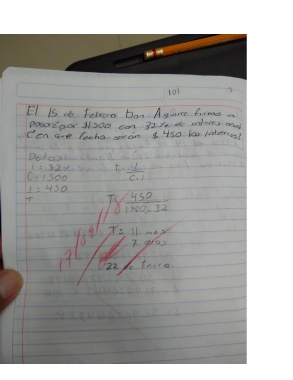 101
El 15 de febrero Don Aguirre firma un
pagaré por $1500 con 32% de interes anual
¿en que fecha serán $ 450 los intereses?
Datos
i = 32%
C = 1500
I = 450
T
T = I
C.i
T = 450
T = 11 mes
7 dias
22 Enero